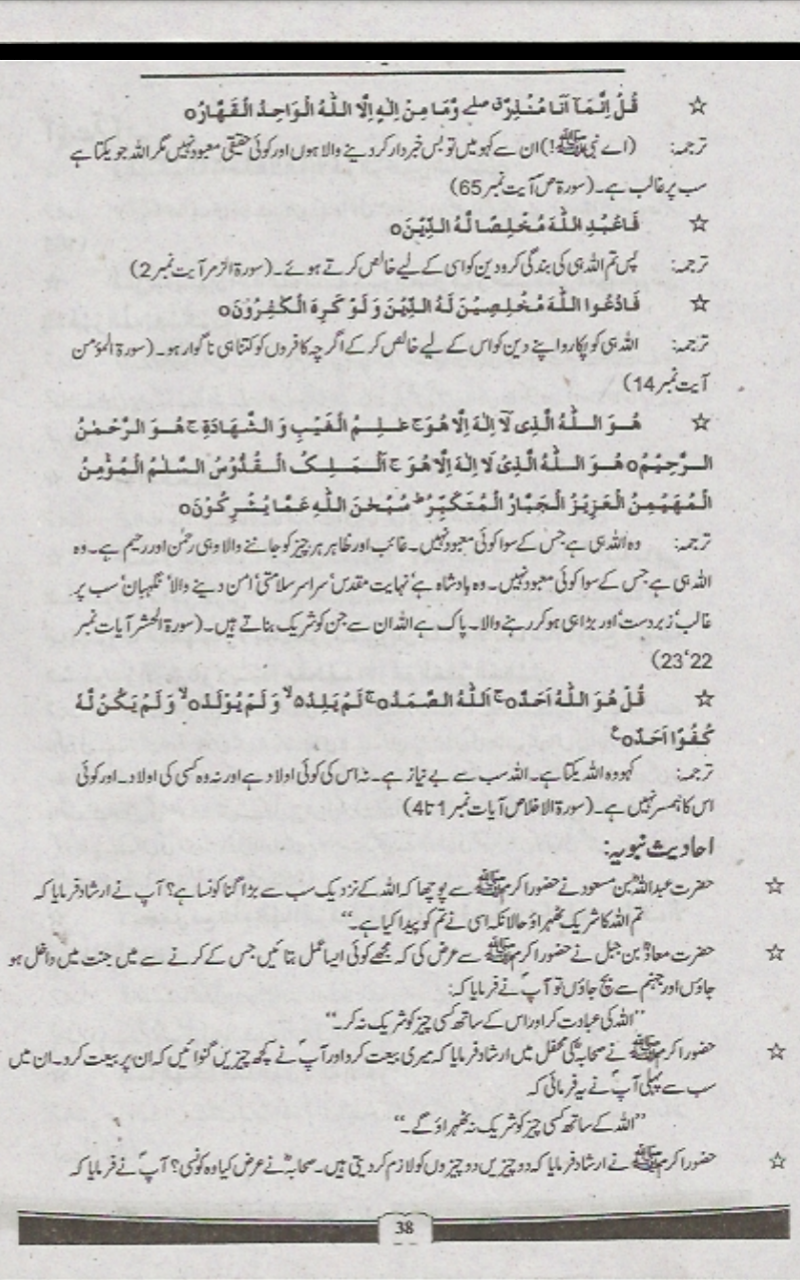 ☆ قُلْ اِنَّمَآ اَنَا مُنْذِرٌ ق صلے وَّمَا مِنْ اِلٰهٍ اِلَّا اللّٰهُ الْوَاحِدُ الْقَهَّارُ o
ترجمہ: (اے نبی ﷺ!) ان سے کہو میں تو بس خبردار کر دینے والا ہوں اور کوئی حقیقی معبود نہیں مگر اللہ جو یکتا ہے
سب پر غالب ہے۔ (سورۃ ص آیت نمبر 65)
☆ فَاعْبُدِ اللّٰهَ مُخْلِصًا لَّهُ الدِّيْنَ o
ترجمہ: پس تم اللہ ہی کی بندگی کرو دین کو اسی کے لیے خالص کرتے ہوئے۔ (سورۃ الزمر آیت نمبر 2)
☆ فَادْعُوا اللّٰهَ مُخْلِصِيْنَ لَهُ الدِّيْنَ وَ لَوْ كَرِهَ الْكٰفِرُوْنَ o
ترجمہ: اللہ ہی کو پکارو اپنے دین کو اس کے لیے خالص کر کے اگرچہ کافروں کو کتنا ہی ناگوار ہو۔ (سورۃ المؤمن
آیت نمبر 14)
☆ هُوَ اللّٰهُ الَّذِىْ لَآ اِلٰهَ اِلَّا هُوَ ج عٰلِمُ الْغَيْبِ وَ الشَّهَادَةِ ج هُوَ الرَّحْمٰنُ
الرَّحِيْمُ o هُوَ اللّٰهُ الَّذِىْ لَا اِلٰهَ اِلَّا هُوَ ج اَلْمَلِكُ الْقُدُّوْسُ السَّلٰمُ الْمُؤْمِنُ
الْمُهَيْمِنُ الْعَزِيْزُ الْجَبَّارُ الْمُتَكَبِّرُ ط سُبْحٰنَ اللّٰهِ عَمَّا يُشْرِكُوْنَ o
ترجمہ: وہ اللہ ہی ہے جس کے سوا کوئی معبود نہیں۔ غائب اور ظاہر ہر چیز کو جاننے والا وہی رحمٰن اور رحیم ہے۔ وہ
اللہ ہی ہے جس کے سوا کوئی معبود نہیں۔ وہ بادشاہ ہے، نہایت مقدس، سراسر سلامتی، امن دینے والا، نگہبان، سب پر
غالب، زبردست، اور بڑا ہی ہو کر رہنے والا۔ پاک ہے اللہ ان سے جن کو شریک بناتے ہیں۔ (سورۃ الحشر آیات نمبر
22، 23)
☆ قُلْ هُوَ اللّٰهُ اَحَدٌ o ج اَللّٰهُ الصَّمَدُ o ج لَمْ يَلِدْ o لا وَ لَمْ يُوْلَدْ o لا وَ لَمْ يَكُنْ لَّهٗ
كُفُوًا اَحَدٌ o ع
ترجمہ: کہو وہ اللہ یکتا ہے۔ اللہ سب سے بے نیاز ہے۔ نہ اس کی کوئی اولاد ہے اور نہ وہ کسی کی اولاد۔ اور کوئی
اس کا ہمسر نہیں ہے۔ (سورۃ الاخلاص آیات نمبر 1 تا 4)
احادیث نبویہ:
☆ حضرت عبداللہؓ بن مسعود نے حضور اکرم ﷺ سے پوچھا کہ اللہ کے نزدیک سب سے بڑا گناہ کونسا ہے؟ آپ نے ارشاد فرمایا کہ
تم اللہ کا شریک ٹھہراؤ حالانکہ اسی نے تم کو پیدا کیا ہے۔‘‘
☆ حضرت معاذؓ بن جبل نے حضور اکرم ﷺ سے عرض کی کہ مجھے کوئی ایسا عمل بتائیں جس کے کرنے سے میں جنت میں داخل ہو
جاؤں اور جہنم سے بچ جاؤں تو آپؐ نے فرمایا کہ:
’’اللہ کی عبادت کر اور اس کے ساتھ کسی چیز کو شریک نہ کر۔‘‘
☆ حضور اکرم ﷺ نے صحابہؓ کی محفل میں ارشاد فرمایا کہ میری بیعت کرو اور آپؐ نے کچھ چیزیں گنوائیں کہ ان پر بیعت کرو۔ ان میں
سب سے پہلی آپؐ نے یہ فرمائی کہ
’’اللہ کے ساتھ کسی چیز کو شریک نہ ٹھہراؤ گے۔‘‘
☆ حضور اکرم ﷺ نے ارشاد فرمایا کہ دو چیزیں دو چیزوں کو لازم کر دیتی ہیں۔ صحابہؓ نے عرض کیا وہ کونسی؟ آپؐ نے فرمایا کہ
38